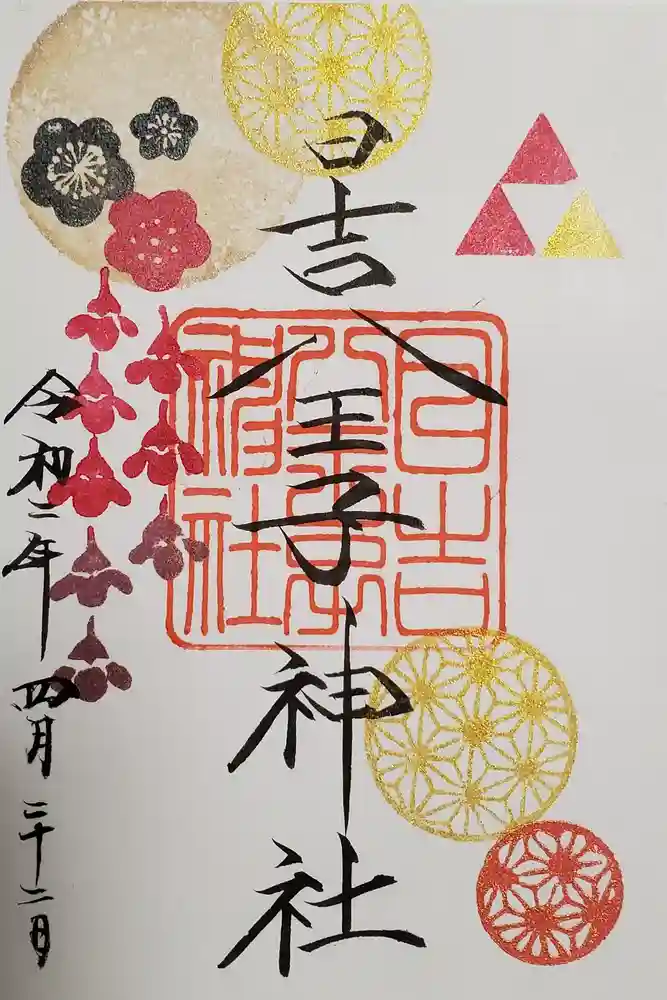 日吉八王子神社
日吉
八王子
神社
令和二年四月二十二日